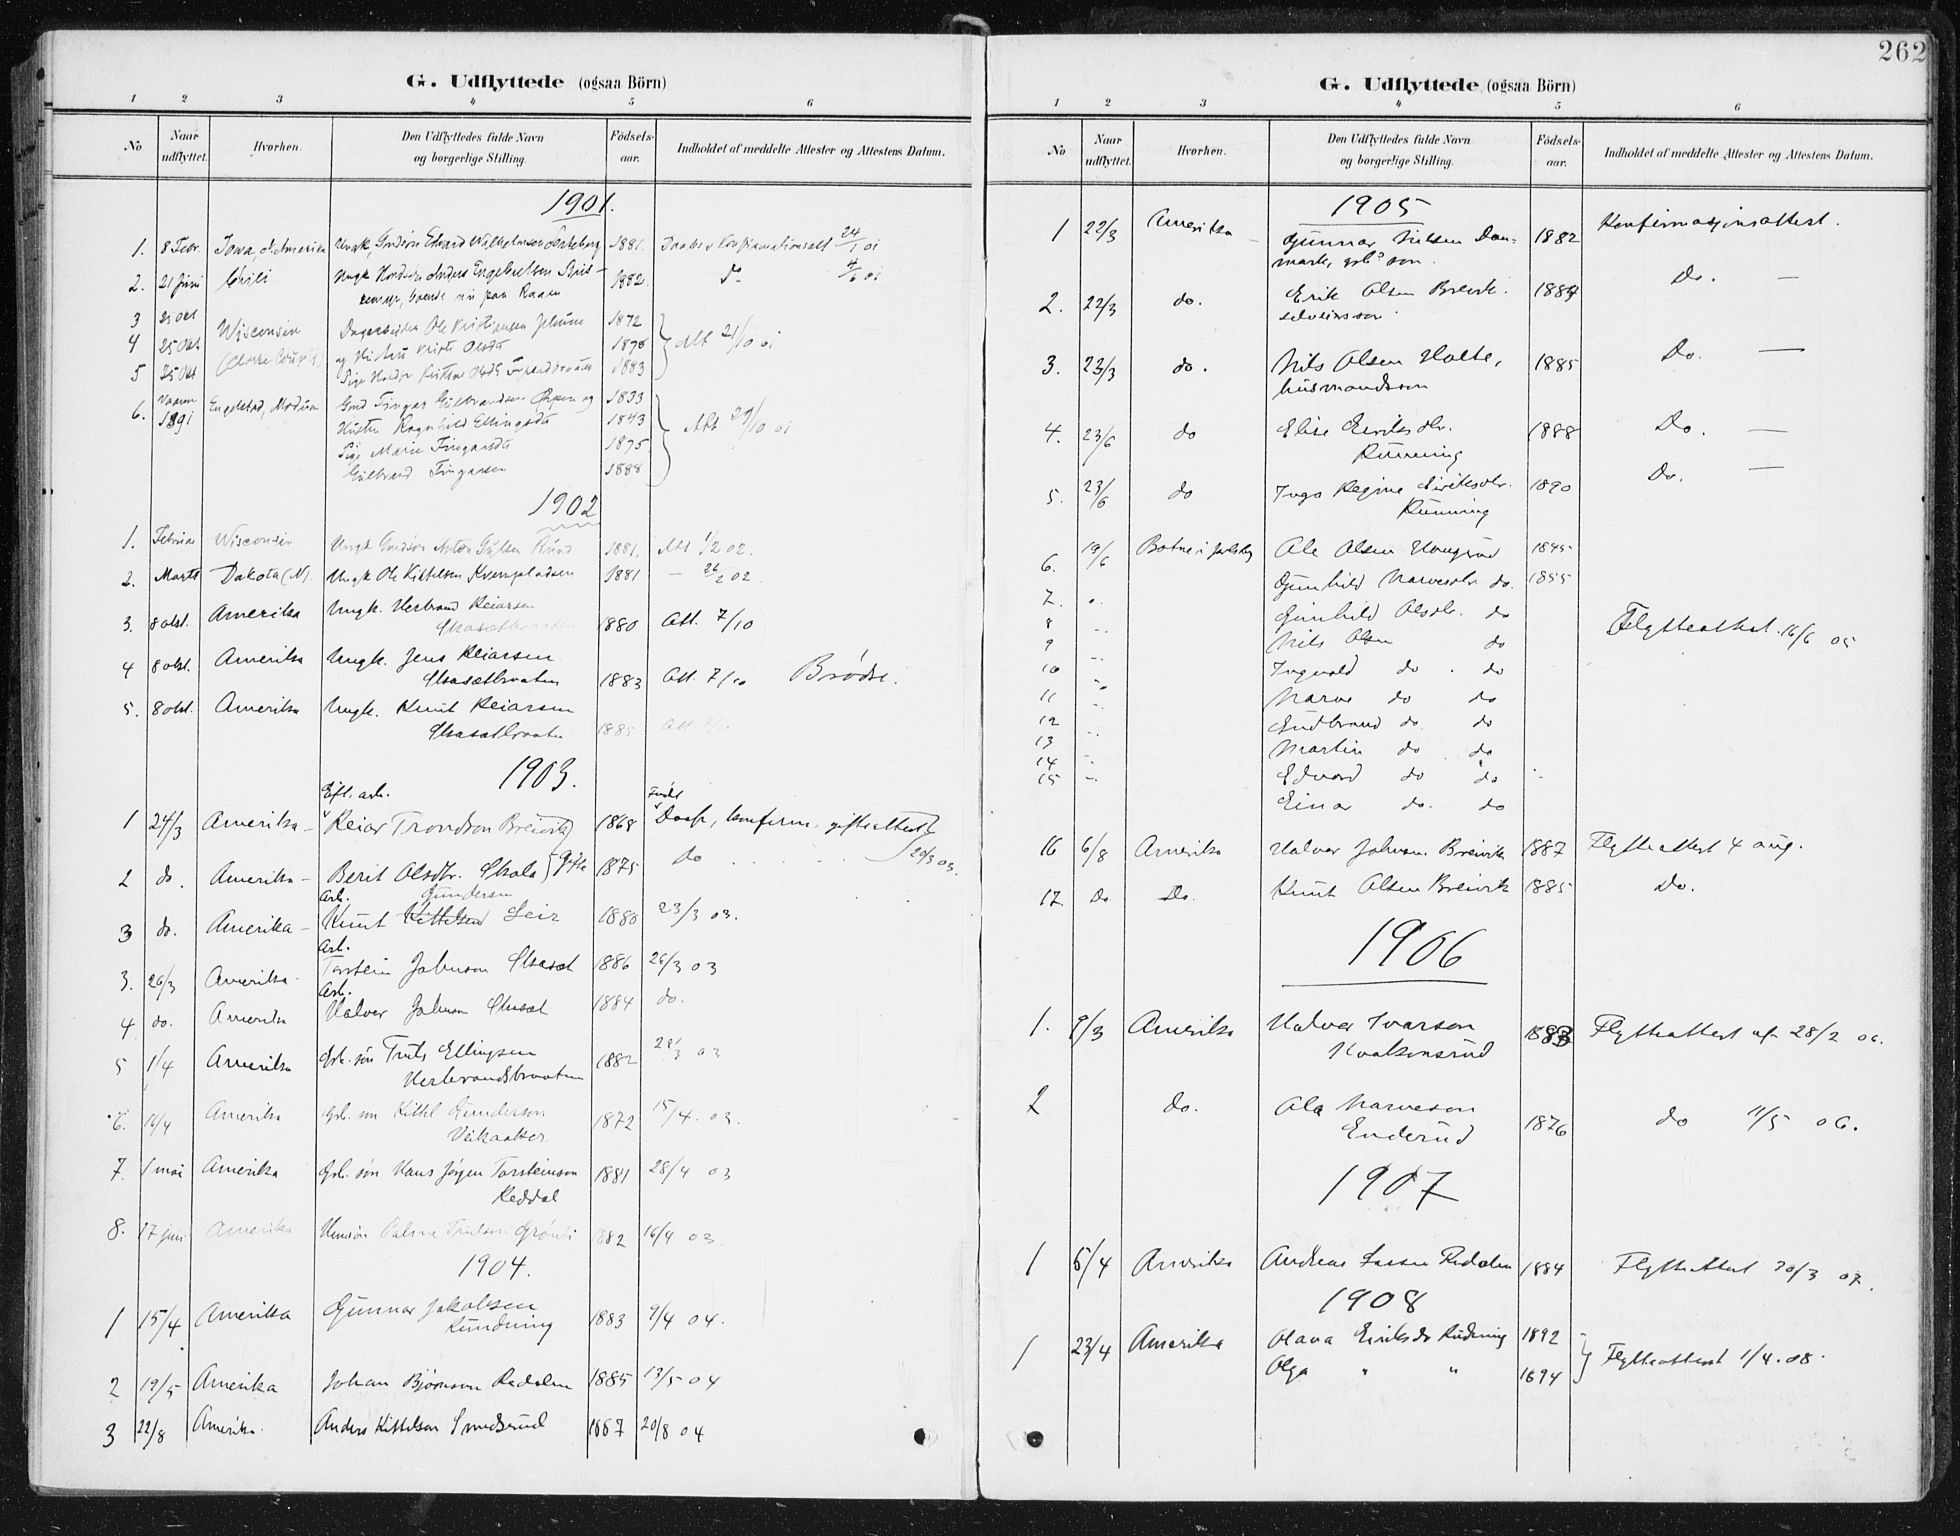 262
G. Udflyttede (ogsaa Börn)
1 2 3 4 5 6
No Naar udflyttet. Hvorhen. Den Udflyttedes fulde Navn og borgerlige Stilling. Födsels-aar. Indholdet af meddelte Attester og Attestens Datum.
1901.
1. 8 Febr. Iowa, N. Amerika Ungk. Edvard 1881. 24/1 01
2. 21 Juni Chili Ungk Anders Engebretsen 1882. do 4/6 01
paa Raaen
3 25 Okt Wisconsin Ole Kristiansen 1872
4 25 Okt og Hustru Olsdt 1876 Att 21/10 01
5 25 Okt Pige 1883
6. Vaaren 1891 Engelstad, Modum Gmd Fingar Gulbrandsen og 1833
Hustru Ragnhild Ellingsdt 1843 Att 29/10 01
Pige Marie Fingarsdt 1875
Gulbrand Fingarsen 1888
1902
1. Februar Wisconsin Ungk Anton 1881. Att 1/2 02.
2. Marts Dakota (N). Ungk Ole Kittelsen 1881 – 26/2 02.
3. 8 okt. Amerika Ungk. Herbrand Reiarsen
Skasætbraaten 1880 Att. 7/10
4 8 okt. Amerika Ungk. Jens Reiarsen
Skasætbraaten 1883 Att. 7/10 Brödre.
5. 8 okt. Amerika Ungk. Knut Reiarsen
Skasætbraaten 1885 Att 7/10
1903.
1 24/3 Amerika – Reiar Trondson Breivik 1868 Daab, konfirm, gifteattest
2 do. Amerika – Berit Olsdtr. Skala gifte 1875 Do 20/3 03.
Arb. Gundersen
3 do. Amerika – Knut Kittelsen Leir 1880 23/3 03.
Arb.
3. 26/3 Amerika – Torstein Johnson Skasæt 1886 26/3 03
Arb.
4 do. Amerika Halvor Johnson Skasæt 1884 do.
5 1/4 Amerika Grb. søn Truls Ellingsen
Herbrandsbraaten 1882 03
6. 16/4 Amerika Grb. søn Kittel Gunderson
Veikaaker 1872 15/4. 03.
7. 1 mai Amerika Grb. søn Hans Jørgen Torsteinson
Reddal 1881 28/4 03
8. 17 juni Amerika Palme Trulson 1882 16/4 03
1904.
1 15/4 Amerika Gunnar Jakobsen
Rundning 1883 7/4 04.
2 19/5 Amerika Johan Bjørnson Redalen 1885 13/5 04
3 22/8 Amerika. Anders Kittelson Smedsrud 1887 20/8 04
G. Udflyttede (ogsaa Börn)
1 2 3 4 5 6
No Naar udflyttet. Hvorhen. Den Udflyttedes fulde Navn og borgerlige Stilling. Födsels-aar. Indholdet af meddelte Attester og Attestens Datum.
1905
1 22/3 Amerika Gunnar Nilsen Dan- 1882 Konfirmasjonsattest.
mark, son.
2. 22/3 do. Erik Olsen Brevik. 1887 Do. —
3. 23/3 do. Nils Olsen Holte, 1885 Do. —
husmandsson
4. 23/6 do Elise Eriksdtr. 1888 Do. —
Running
5. 23/6 do Inga Regine Eiriksdtr. 1890 Do. —
Running
6. 19/6 Botne i Jarlsbg Ole Olsen Haugrud 1845
7. Gunhild Narvesdtr. do. 1855
8 Gunhild Olsdtr. do Flytteattest 16/6 05
9 Nils Olsen do
10 Ingvald do. do
11 Narve do do
12 Gudbrand do do
13 Martin do do
14 Edvard do do
15 Einar do. do
16 6/8 Amerika Halvor Johnsen Breivik 1887 Flytteattest 4 aug.
17 Do Do. Knut Olsen Breivik 1885 Do.
1906
1. 9/3 Amerika Halvor Ivarson 1883 Flytteattest af 28/2 06.
Haakonsrud
2 do. Ole Narveson
Enderud 1876 do 11/5 06.
1907
1 5/4 Amerika Andreas Larsen Redalen 1884 Flytteattest 20/3 07.
1908
1 23/4 Amerika Olava Eiriksdr Rudning 1892
Olga " " 1894 Flytteattest 1/4.08.